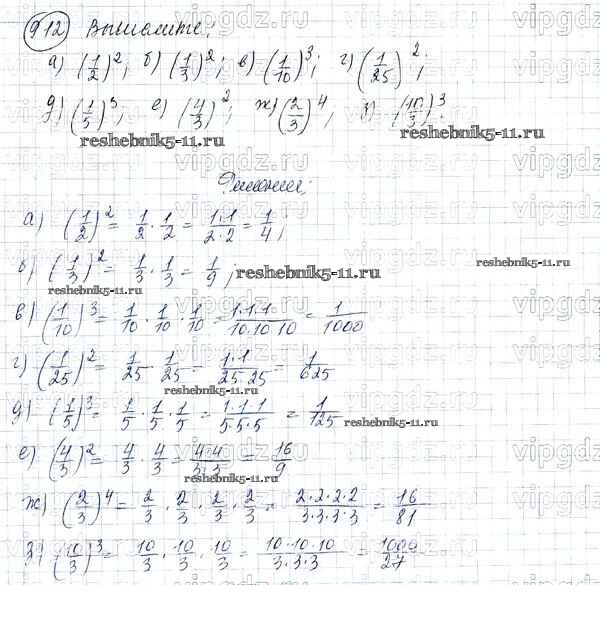 912) Вычислите:
а) (1/2)²; б) (1/3)²; в) (1/10)³; г) (1/25)²;
д) (1/5)³; е) (4/3)²; ж) (2/3)⁴; з) (10/3)³.
reshebnik5-11.ru reshebnik5-11.ru
Решение:
а) (1/2)² = 1/2 · 1/2 = 1·1/2·2 = 1/4;
reshebnik5-11.ru
б) (1/3)² = 1/3 · 1/3 = 1/9; reshebnik5-11.ru
reshebnik5-11.ru
в) (1/10)³ = 1/10 · 1/10 · 1/10 = 1·1·1/10·10·10 = 1/1000
г) (1/25)² = 1/25 · 1/25 = 1·1/25·25 = 1/625
reshebnik5-11.ru
д) (1/5)³ = 1/5 · 1/5 · 1/5 = 1·1·1/5·5·5 = 1/125
reshebnik5-11.ru
е) (4/3)² = 4/3 · 4/3 = 4·4/3·3 = 16/9
reshebnik5-11.ru
ж) (2/3)⁴ = 2/3 · 2/3 · 2/3 · 2/3 = 2·2·2·2/3·3·3·3 = 16/81
з) (10/3)³ = 10/3 · 10/3 · 10/3 = 10·10·10/3·3·3 = 1000/27
vipgdz.ru